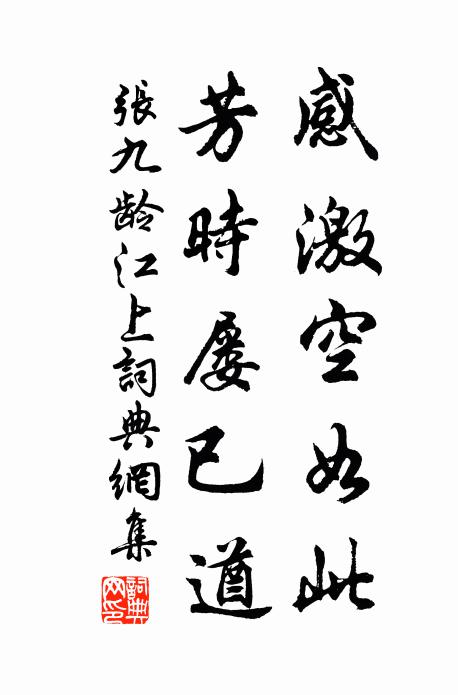 感激空如此
芳時屢已遒
張九齡江上詞典網集
詞典網印